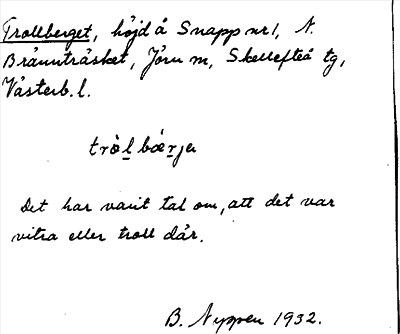 Trollberget, höjd å Snapp nr 1, N.
Brännträsket, Jörn sn, Skellefteå tg,
Västerb. l.
tròl bær̲je
Det har varit tal om, att det var
vitra eller troll där.
B. Nyppen 1932.